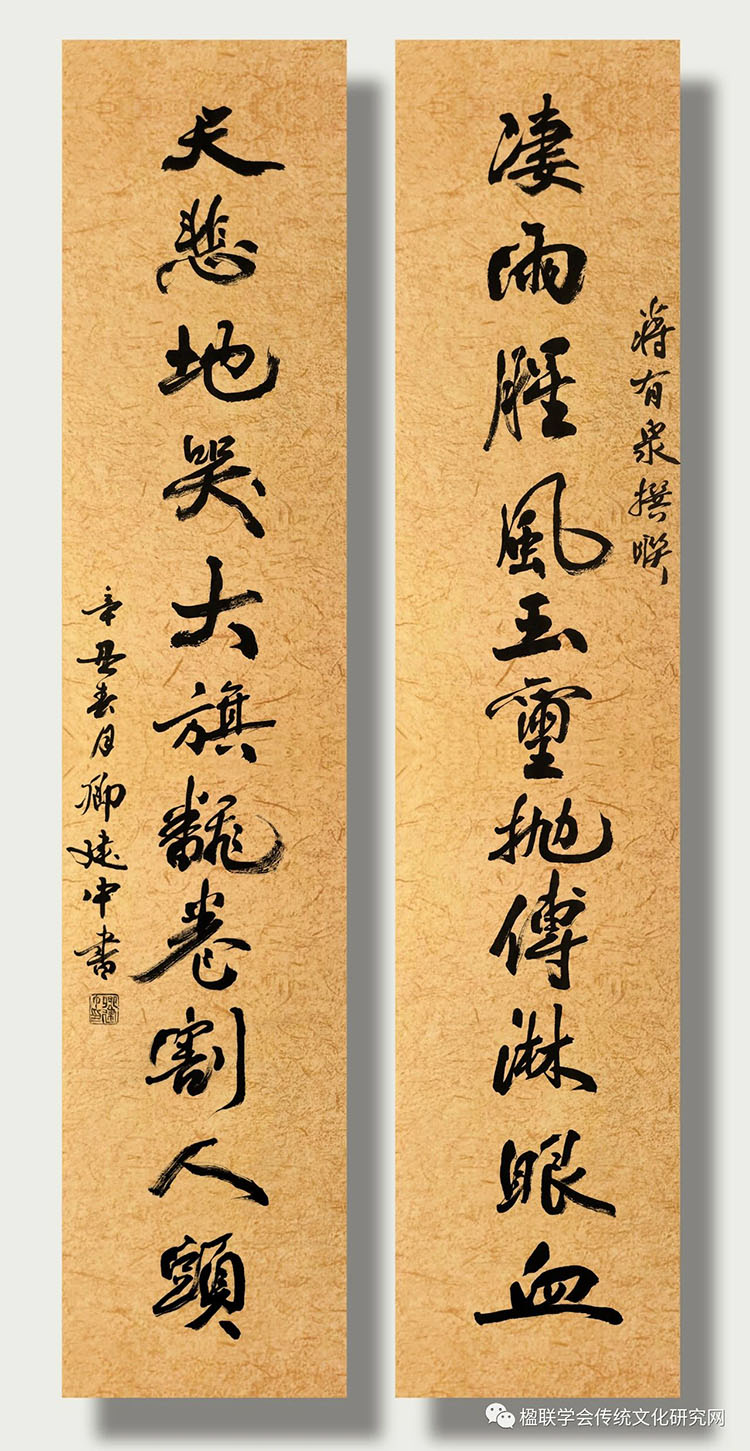 凄雨腥風玉璽拋傳淋眼血
蔣有泉撰聯
天悲地哭大旗飜卷割人頭
辛丑春月卿建中書
楹联学会传统文化研究网